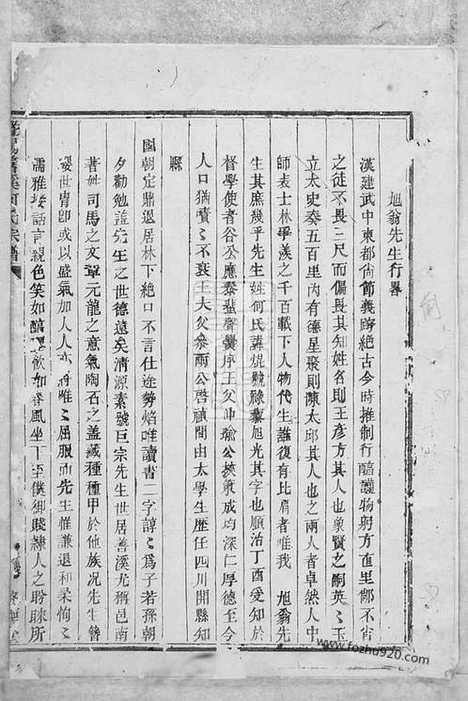 旭翁先生行畧
漢建武中東都尙節義跨絶古今時推制行醖醲物躬方直里鄰不肯
之徒不畏三尺而偏畏其知姓名則王彦方其人也象賢之嗣英〻玉
立太史奏五百里內有德星聚則陳太邱其人也之兩人者卓然人中
師表士林爭羨之千百載下人物代生誰復有比肩者惟我 旭翁先
生其庶幾乎先生姓何氏諱焜號 旭光其字也順治丁酉受知於
督學使者谷公應泰蜚聲黌序王父 公挾 成均深仁厚德至今
人口猶嘖〻不衰王大父 公啓禎間由太學生歷任四川開縣知
縣
國朝定鼎退居林下絶口不言仕途勞焰唯讀書二字諄〻爲子若孫朝
夕勸勉 先王之世德遠矣清源素號巨宗先生世居善溪尤稱邑南
著姓司馬之文章元龍之意氣陶石之蓋藏種種甲於他族况先生簪
世胄卽或以盛氣加人人亦唯〻屈服而先生惟謙退和柔恂〻
儒雅接話言親色笑如醕醲歡如春風坐一至僕御賤隸人之盼睞所